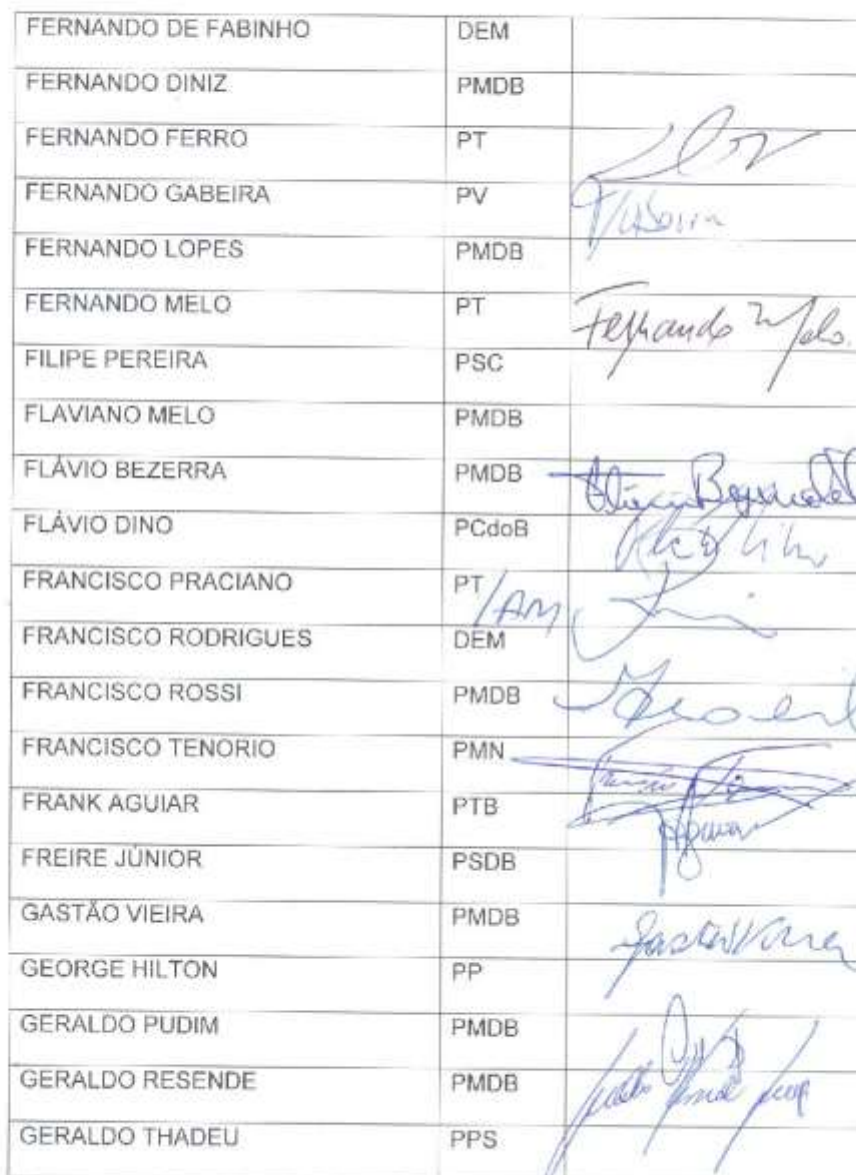 FERNANDO DE FABINHO DEM
FERNANDO DINIZ PMDB
FERNANDO FERRO PT
FERNANDO GABEIRA PV
FERNANDO LOPES PMDB
FERNANDO MELO PT Fernando Melo
FILIPE PEREIRA PSC
FLAVIANO MELO PMDB
FLÁVIO BEZERRA PMDB
FLÁVIO DINO PCdoB
FRANCISCO PRACIANO PT /AM
FRANCISCO RODRIGUES DEM
FRANCISCO ROSSI PMDB
FRANCISCO TENORIO PMN
FRANK AGUIAR PTB
FREIRE JÚNIOR PSDB
GASTÃO VIEIRA PMDB
GEORGE HILTON PP
GERALDO PUDIM PMDB
GERALDO RESENDE PMDB
GERALDO THADEU PPS